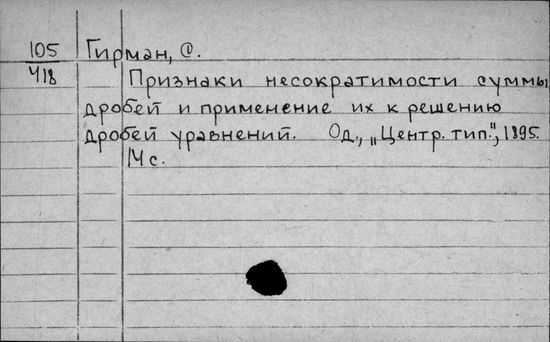 105 Гирман, О.
418
Признаки несократимости суммы
дробей и применение их к решению
дробей уравнений. Од., „Центр. тип.", 1895.
14 с.